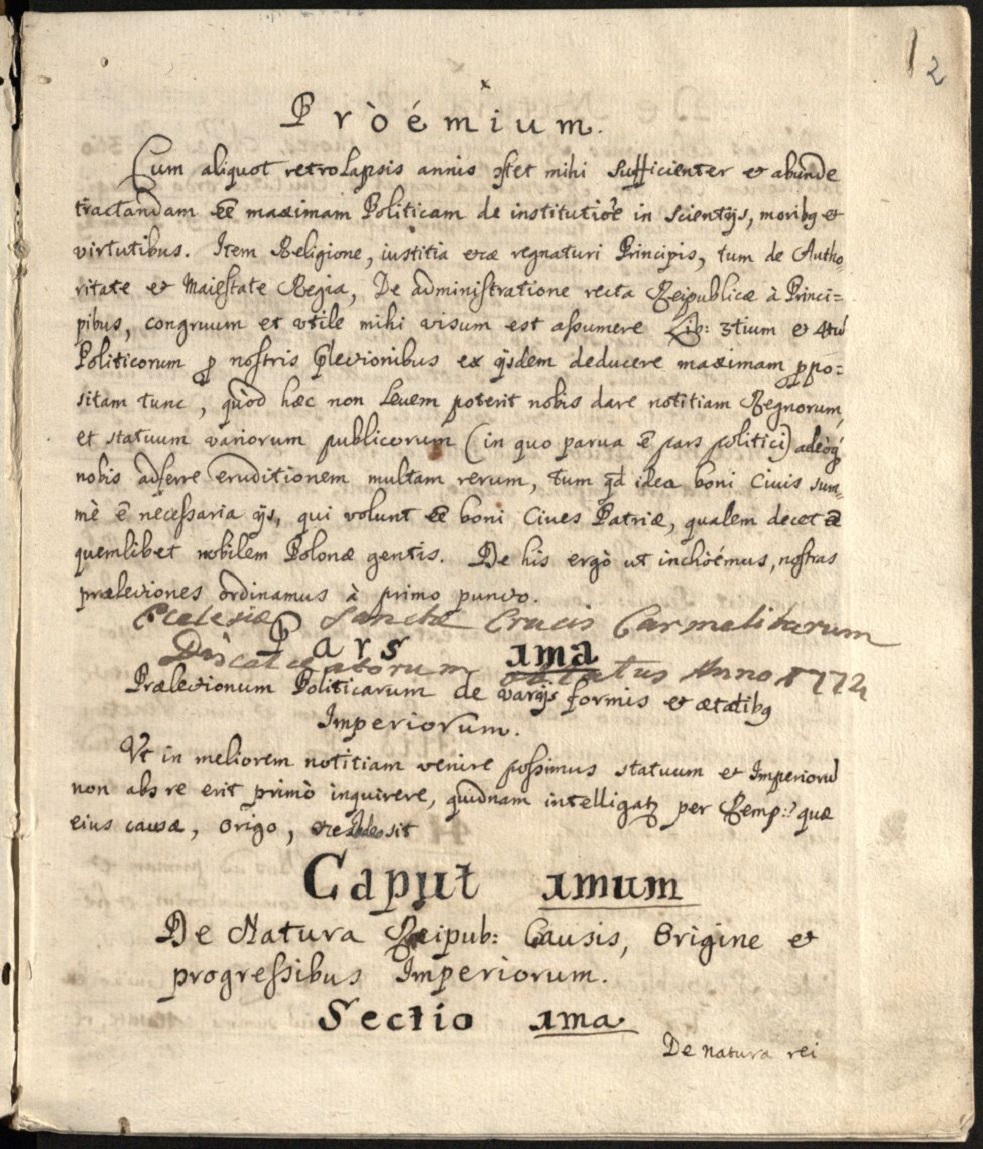 2
Pròémium.
Cum aliquot retrolapsis annis ɔstet mihi sufficienter et abunde
tractandam eē maximam Politicam de institutiōe in scientijs, moribꝫ et
virtutibus. Item Religione, iustitia etcæ regnaturi Principis, tum de Autho-
ritate et Maiestate Regia, De administratione recta Reipublicæ à Princi=
pibus, congruum et vtile mihi visum est assumere Lib: 3tium et 4tū
Politicorum ꝓ nostris p̄lectionibus ex ijsdem deducere maximam ꝓpo=
sitam tunc, quòd hæc non leuem poterit nobis dare notitiam Regnorum,
et statuum variorum publicorum (in quo parua ē pars politici) adeòqꝫ
nobis adferre eruditionem multam rerum, tum qd idea boni Ciuis sum-
mè ē necessaria ijs, qui volunt eē boni Ciues Patriæ, qualem decet eē
quemlibet nobilem Polonæ gentis. De his ergò ut inchoémus, nostras
prælectiones ordinamus à primo puncto.
Eclesiæ Sanctæ Crucis Carmelitarum
Pars 1ma
Discalceatorum oblatus Anno 1772
Prælectionum Politicarum de varijs formis et ætatibꝫ
Imperiorum.
Vt in meliorem notitiam venire possimus statuum et Imperiorū
non abs re erit primò inquirere, quidnam intelligatꝫ per Remp: quæ
eius causæ, origo, sit
Caput 1mum
De Natura Reipub: Causis, Origine et
progressibus Imperiorum.
Sectio 1ma
De natura rei